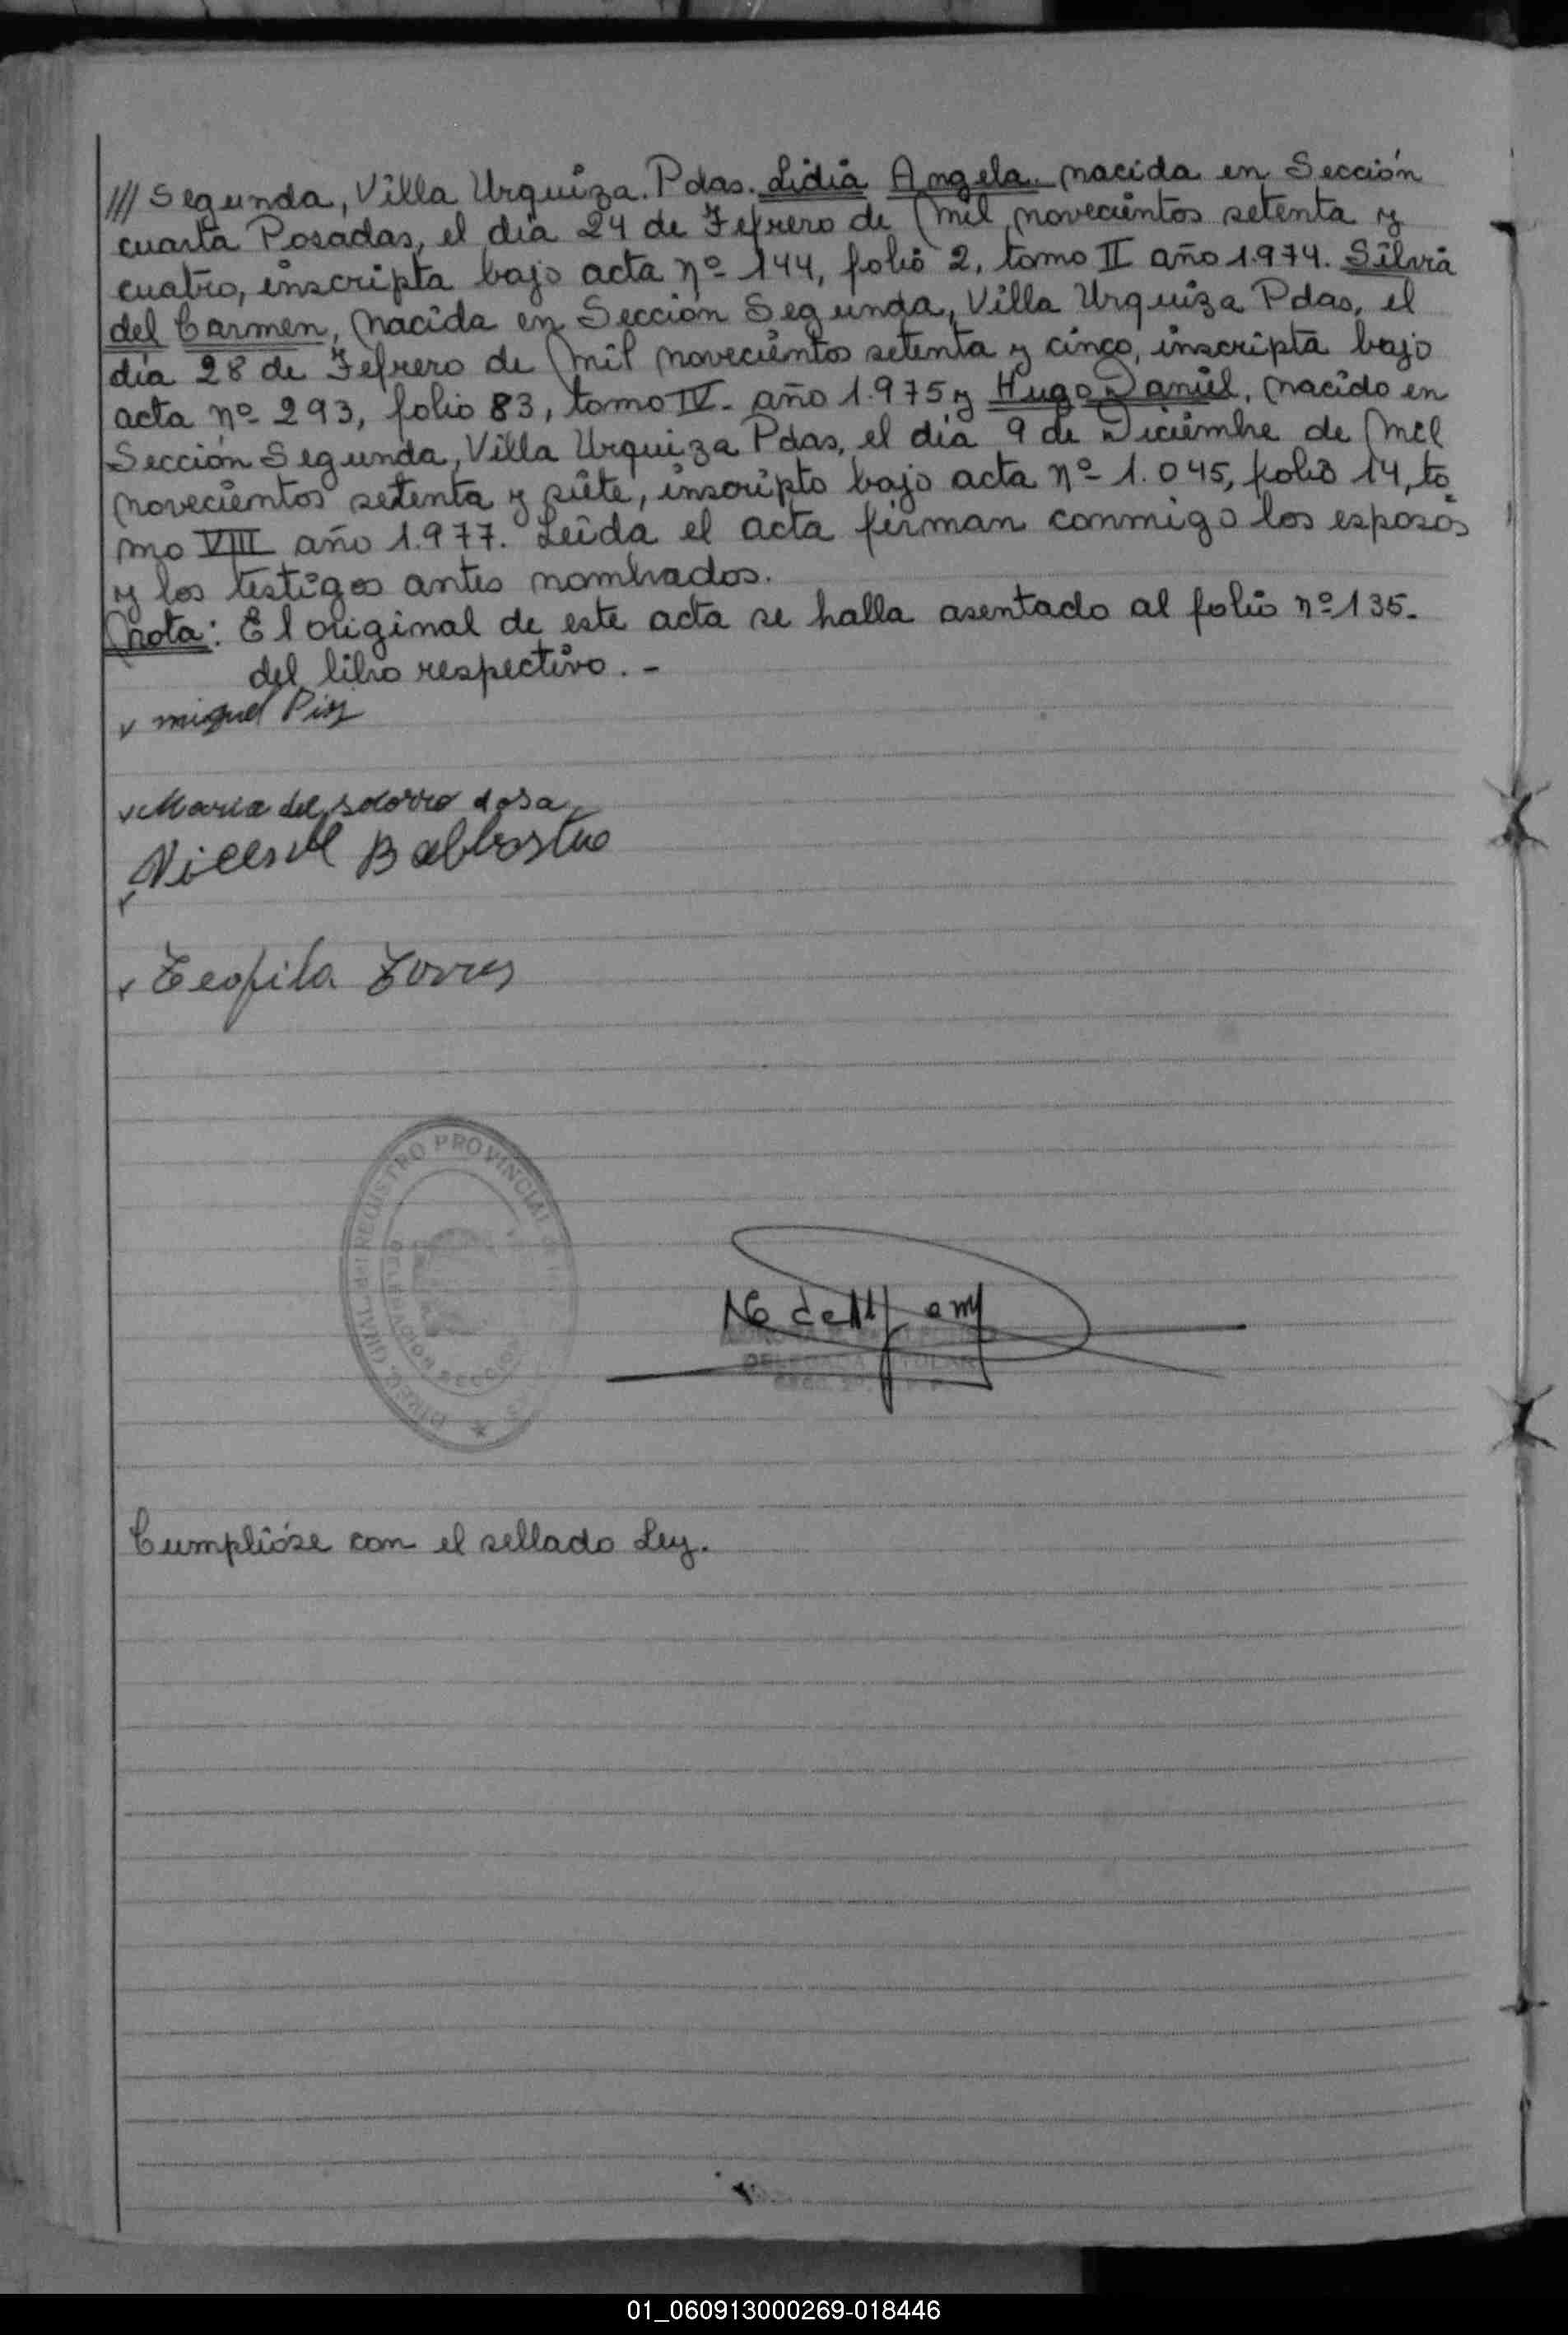 /// Segunda, Villa Urquiza. Pdas. Lidia Angela. nacida en Sección
cuarta Posadas, el día 24 de Febrero de mil novecientos setenta y
cuatro, inscripta bajo acta nº 144, folio 2, tomo II año 1.974. Silvia
del Carmen, nacida en Sección Segunda, Villa Urquiza Pdas, el
día 28 de Febrero de mil novecientos setenta y cinco, inscripta bajo
acta nº 293, folio 83, tomo IV- año 1.975 y Hugo Daniel, nacido en
Sección Segunda, Villa Urquiza Pdas, el día 9 de Diciembre de mil
novecientos setenta y siete, inscripto bajo acta nº 1.045, folio 14, to
mo VIII año 1.977. Leída el acta firman conmigo los esposos
y los testigos antes nombrados.
Nota: El original de este acta se halla asentado al folio nº 135.
del libro respectivo. -
miguel
Maria del socorro
Teofila Torres
REGISTRO PROVINCIAL
DELEGACION SECCION
DELEGADA TITULAR
Cumplióse con el sellado Ley.
01_060913000269-018446